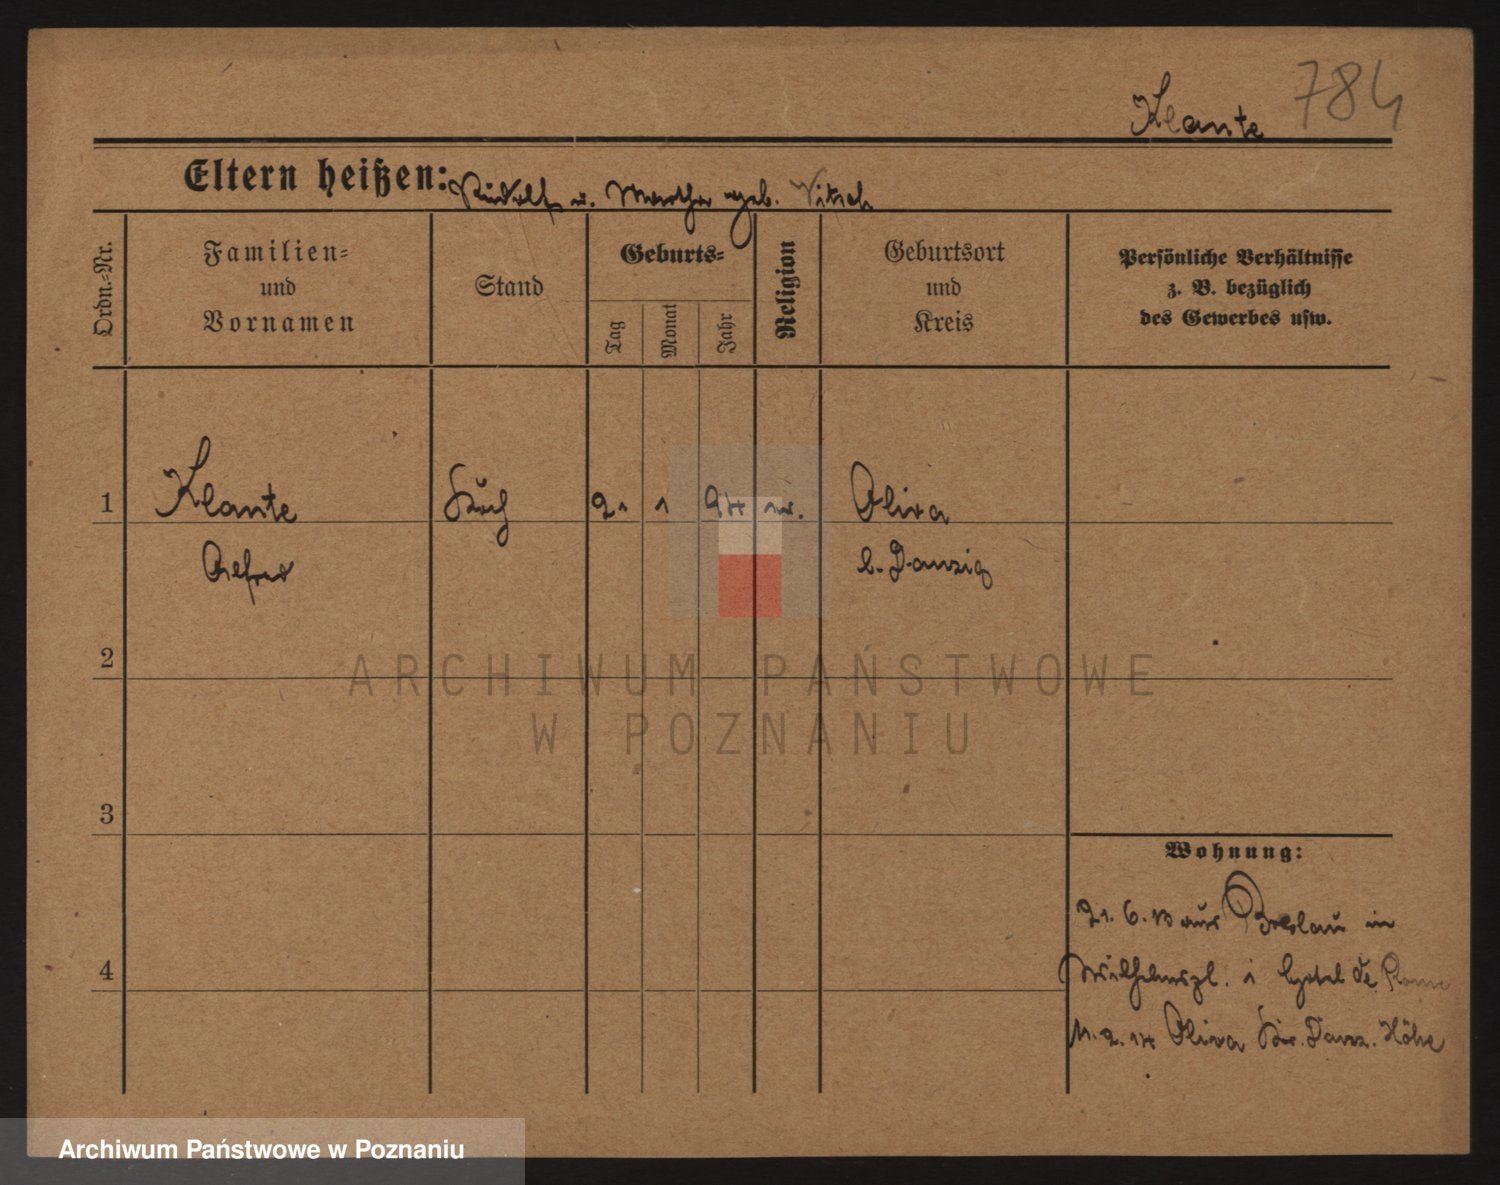 Klante 784
Eltern heißen: Rudolf u. Martha geb. Nitsch
Ordn.-Nr.
Familien=
und
Vornamen
Stand
Geburts=
Tag
Monat
Jahr
Religion
Geburtsort
und
Kreis
Persönliche Verhältnisse
z. B. bezüglich
des Gewerbes usw.
1 Klante 21 1 94 Oliva
Alfred b. Danzig
2
ARCHIWUM PAŃSTWOWE
W POZNANIU
3
Wohnung:
21. 6. 13 aus Breslau in
4 Wilhelmspl. 1 Hotel de Rome
11. 2. 14 Oliva Kr. Danz. Höhe
Archiwum Państwowe w Poznaniu